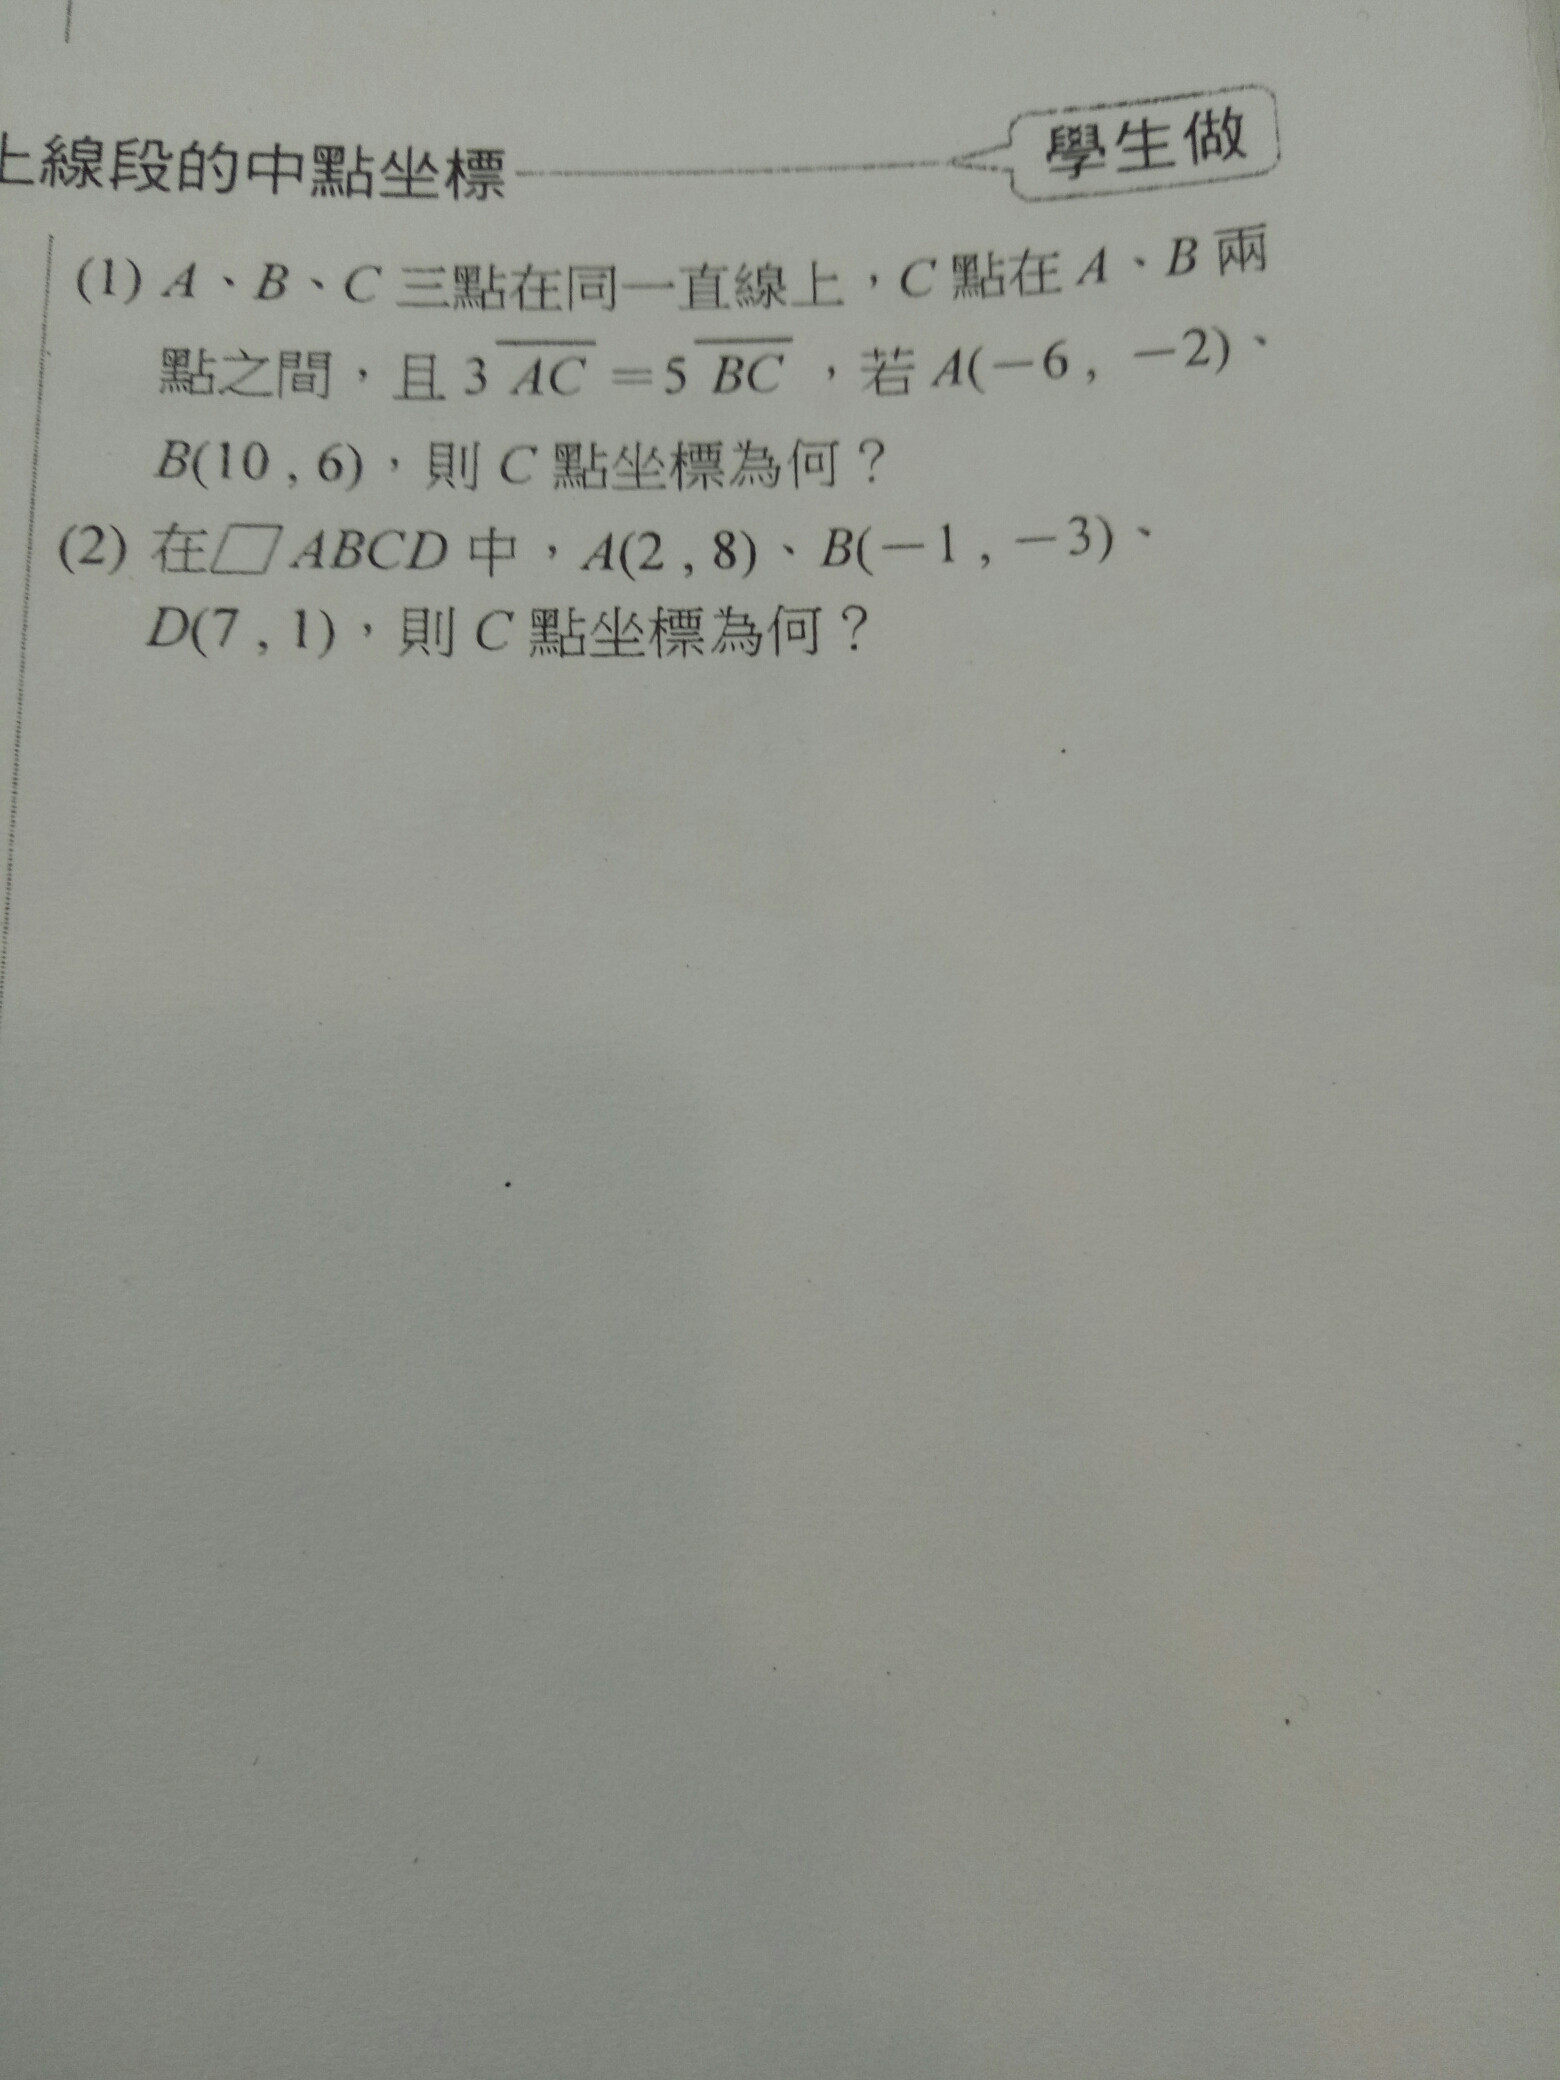 上線段的中點坐標
學生做
(1) A、B、C 三點在同一直線上，C 點在 A、B 兩
點之間，且 3 AC = 5 BC ，若 A(－6 , －2)、
B(10 , 6)，則 C 點坐標為何？
(2) 在▱ABCD 中，A(2 , 8)、B(－1 , －3)、
D(7 , 1)，則 C 點坐標為何？